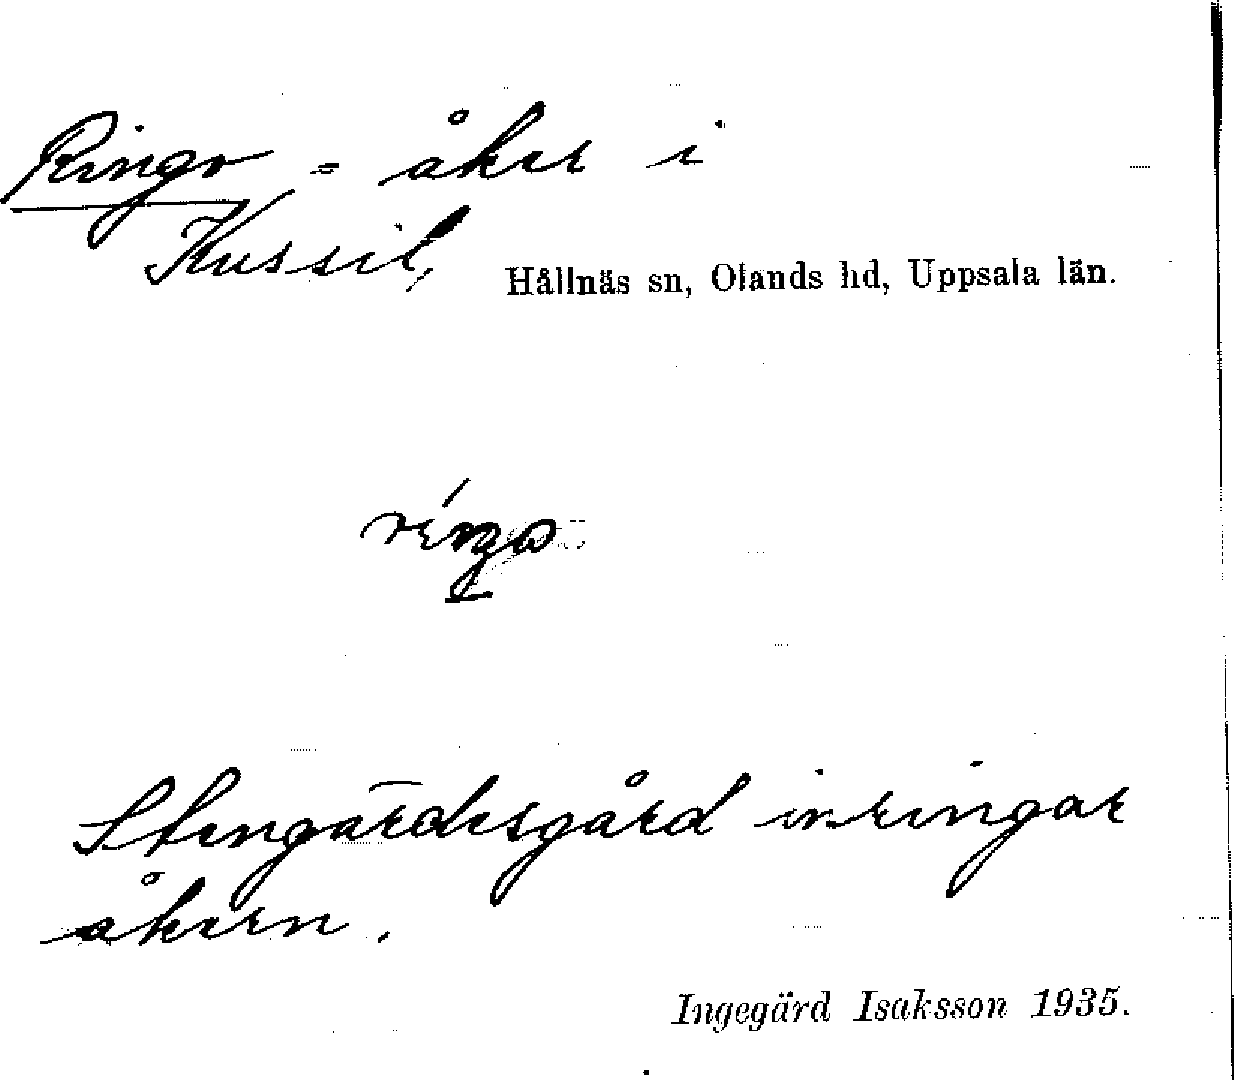 Ringo = åker i
Kussil,
Hållnäs sn, Olands hd, Uppsala län.
Stengärdesgård inringar
åkern.
Ingegärd Isaksson 1935.